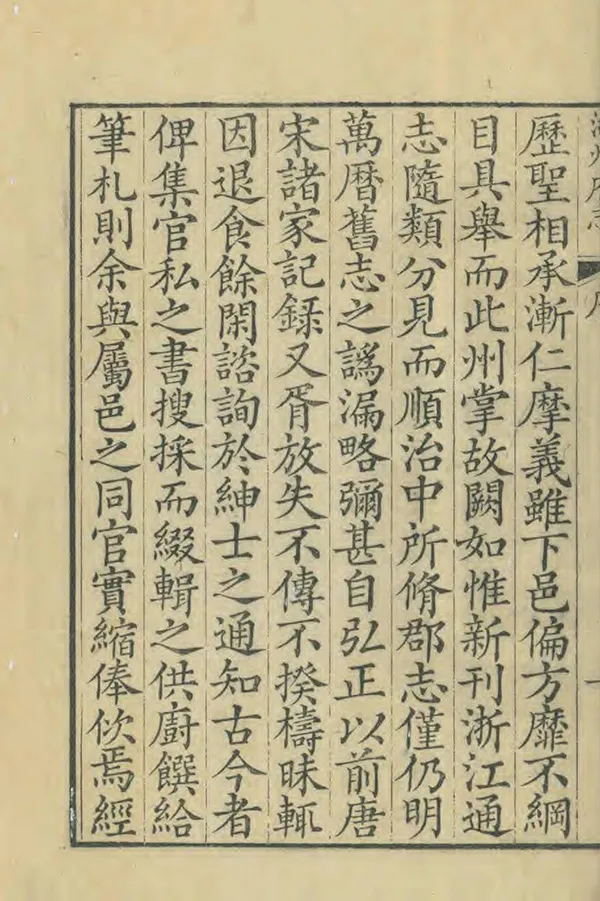 歷聖相承漸仁摩義雖下邑偏方靡不綱
目具舉而此州掌故闕如惟新刊浙江通
志隨類分見而順治中所脩郡志僅仍明
萬曆舊志之譌漏略彌甚自弘正以前唐
宋諸家記録又胥放失不傳不揆檮昧輒
因退食餘閑諮詢於紳士之通知古今者
俾集官私之書搜採而綴輯之供廚饌給
筆札則余與屬邑之同官實縮俸佽焉經